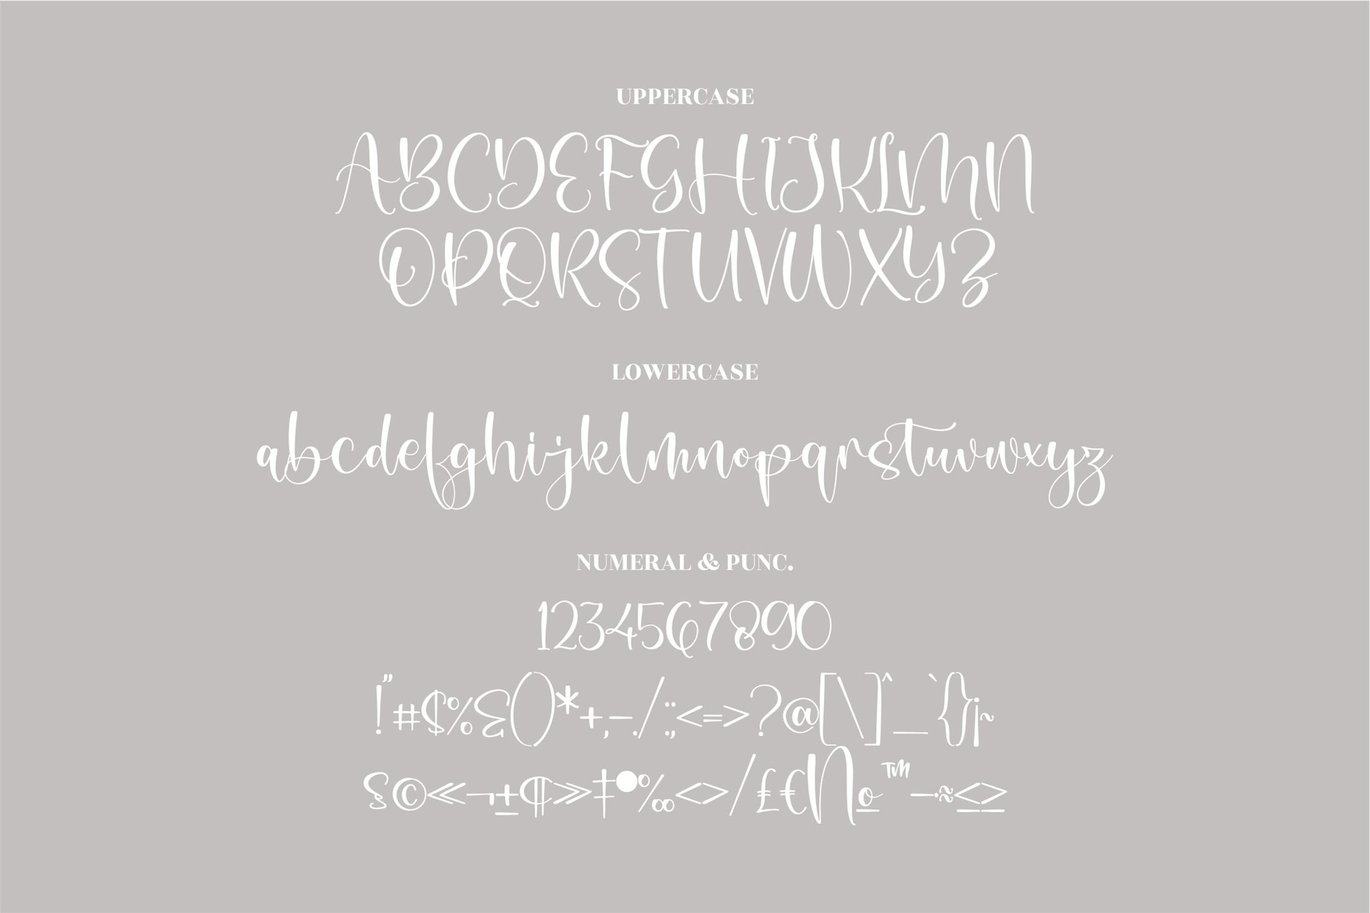 UPPERCASE
ABCDEFGHIJKLMN
OPQRSTUVWXYZ
LOWERCASE
abcdefghijklmnopqrstuvwxyz
NUMERAL & PUNC.
1234567890
!"#$%&()*+,-./:;<=>?@[\]^_`{}¡~
§©«¬±¶»‡•‰<>/£€№™−∙≈≤≥